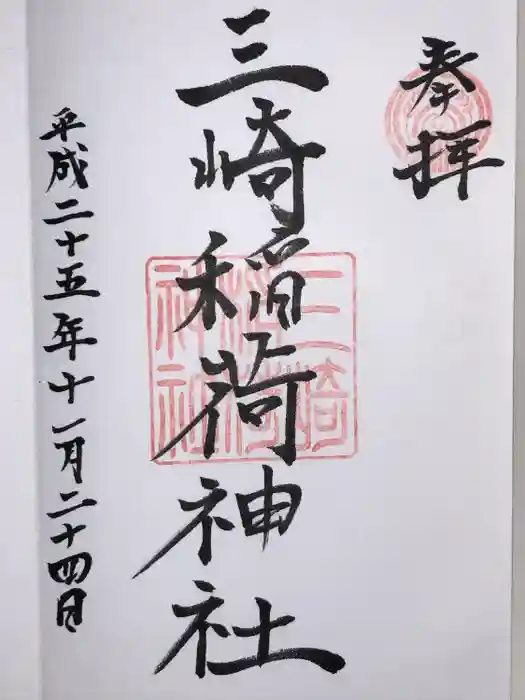 奉拝
三崎稲荷神社
三崎稲荷神社
平成二十五年十一月二十四日